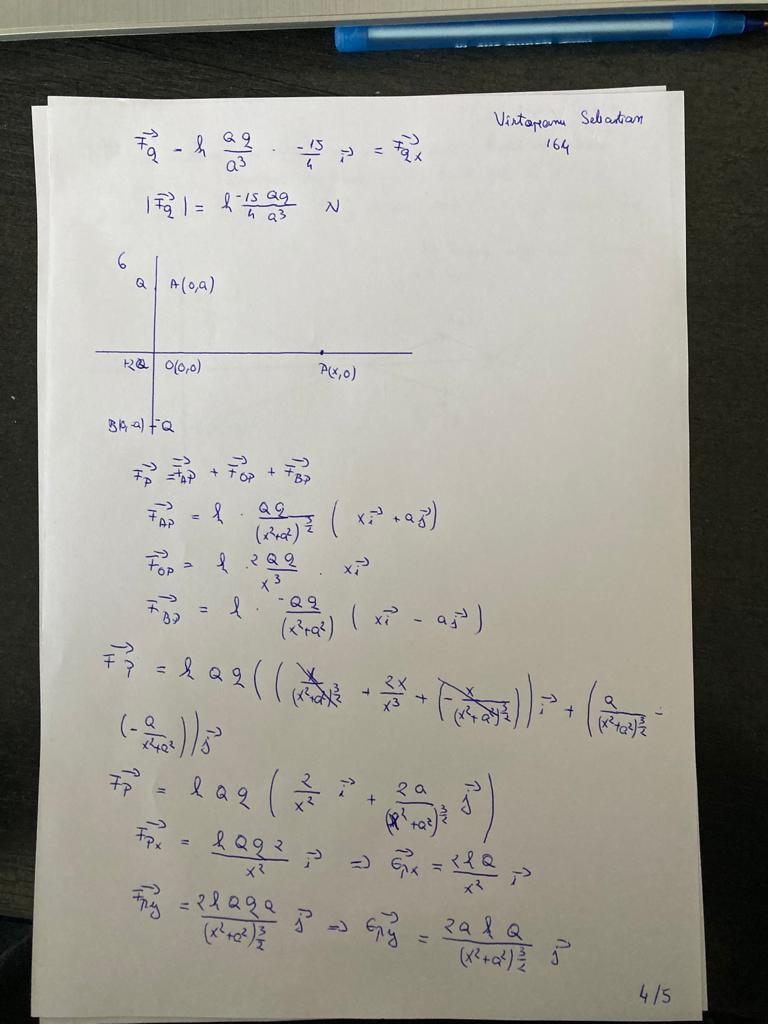 Sebastian
164
F⃗q = k Qq/a³ · -15/4 i⃗ = F⃗qx
|F⃗q| = k -15/4 Qq/a³ N
6
Q A(0,a)
+2Q O(0,0) P(x,0)
B(0,-a) -Q
F⃗P = F⃗AP + F⃗OP + F⃗BP
F⃗AP = k · Qq/(x²+a²)^3/2 (xi⃗ + aj⃗)
F⃗OP = k · 2Qq/x³ · xi⃗
F⃗BP = k · -Qq/(x²+a²) (xi⃗ - aj⃗)
F⃗P = kQq((x/(x²+a²)^3/2 + 2x/x³ + (-x/(x²+a²)^3/2))i⃗ + (a/(x²+a²)^3/2 -
(-a/x²+a²))j⃗
F⃗P = kQq(2/x² i⃗ + 2a/(x²+a²)^3/2 j⃗)
F⃗Px = kQq2/x² i⃗ => E⃗px = 2kQ/x² i⃗
F⃗py = 2kQqa/(x²+a²)^3/2 j⃗ => E⃗py = 2akQ/(x²+a²)^3/2 j⃗
4/5